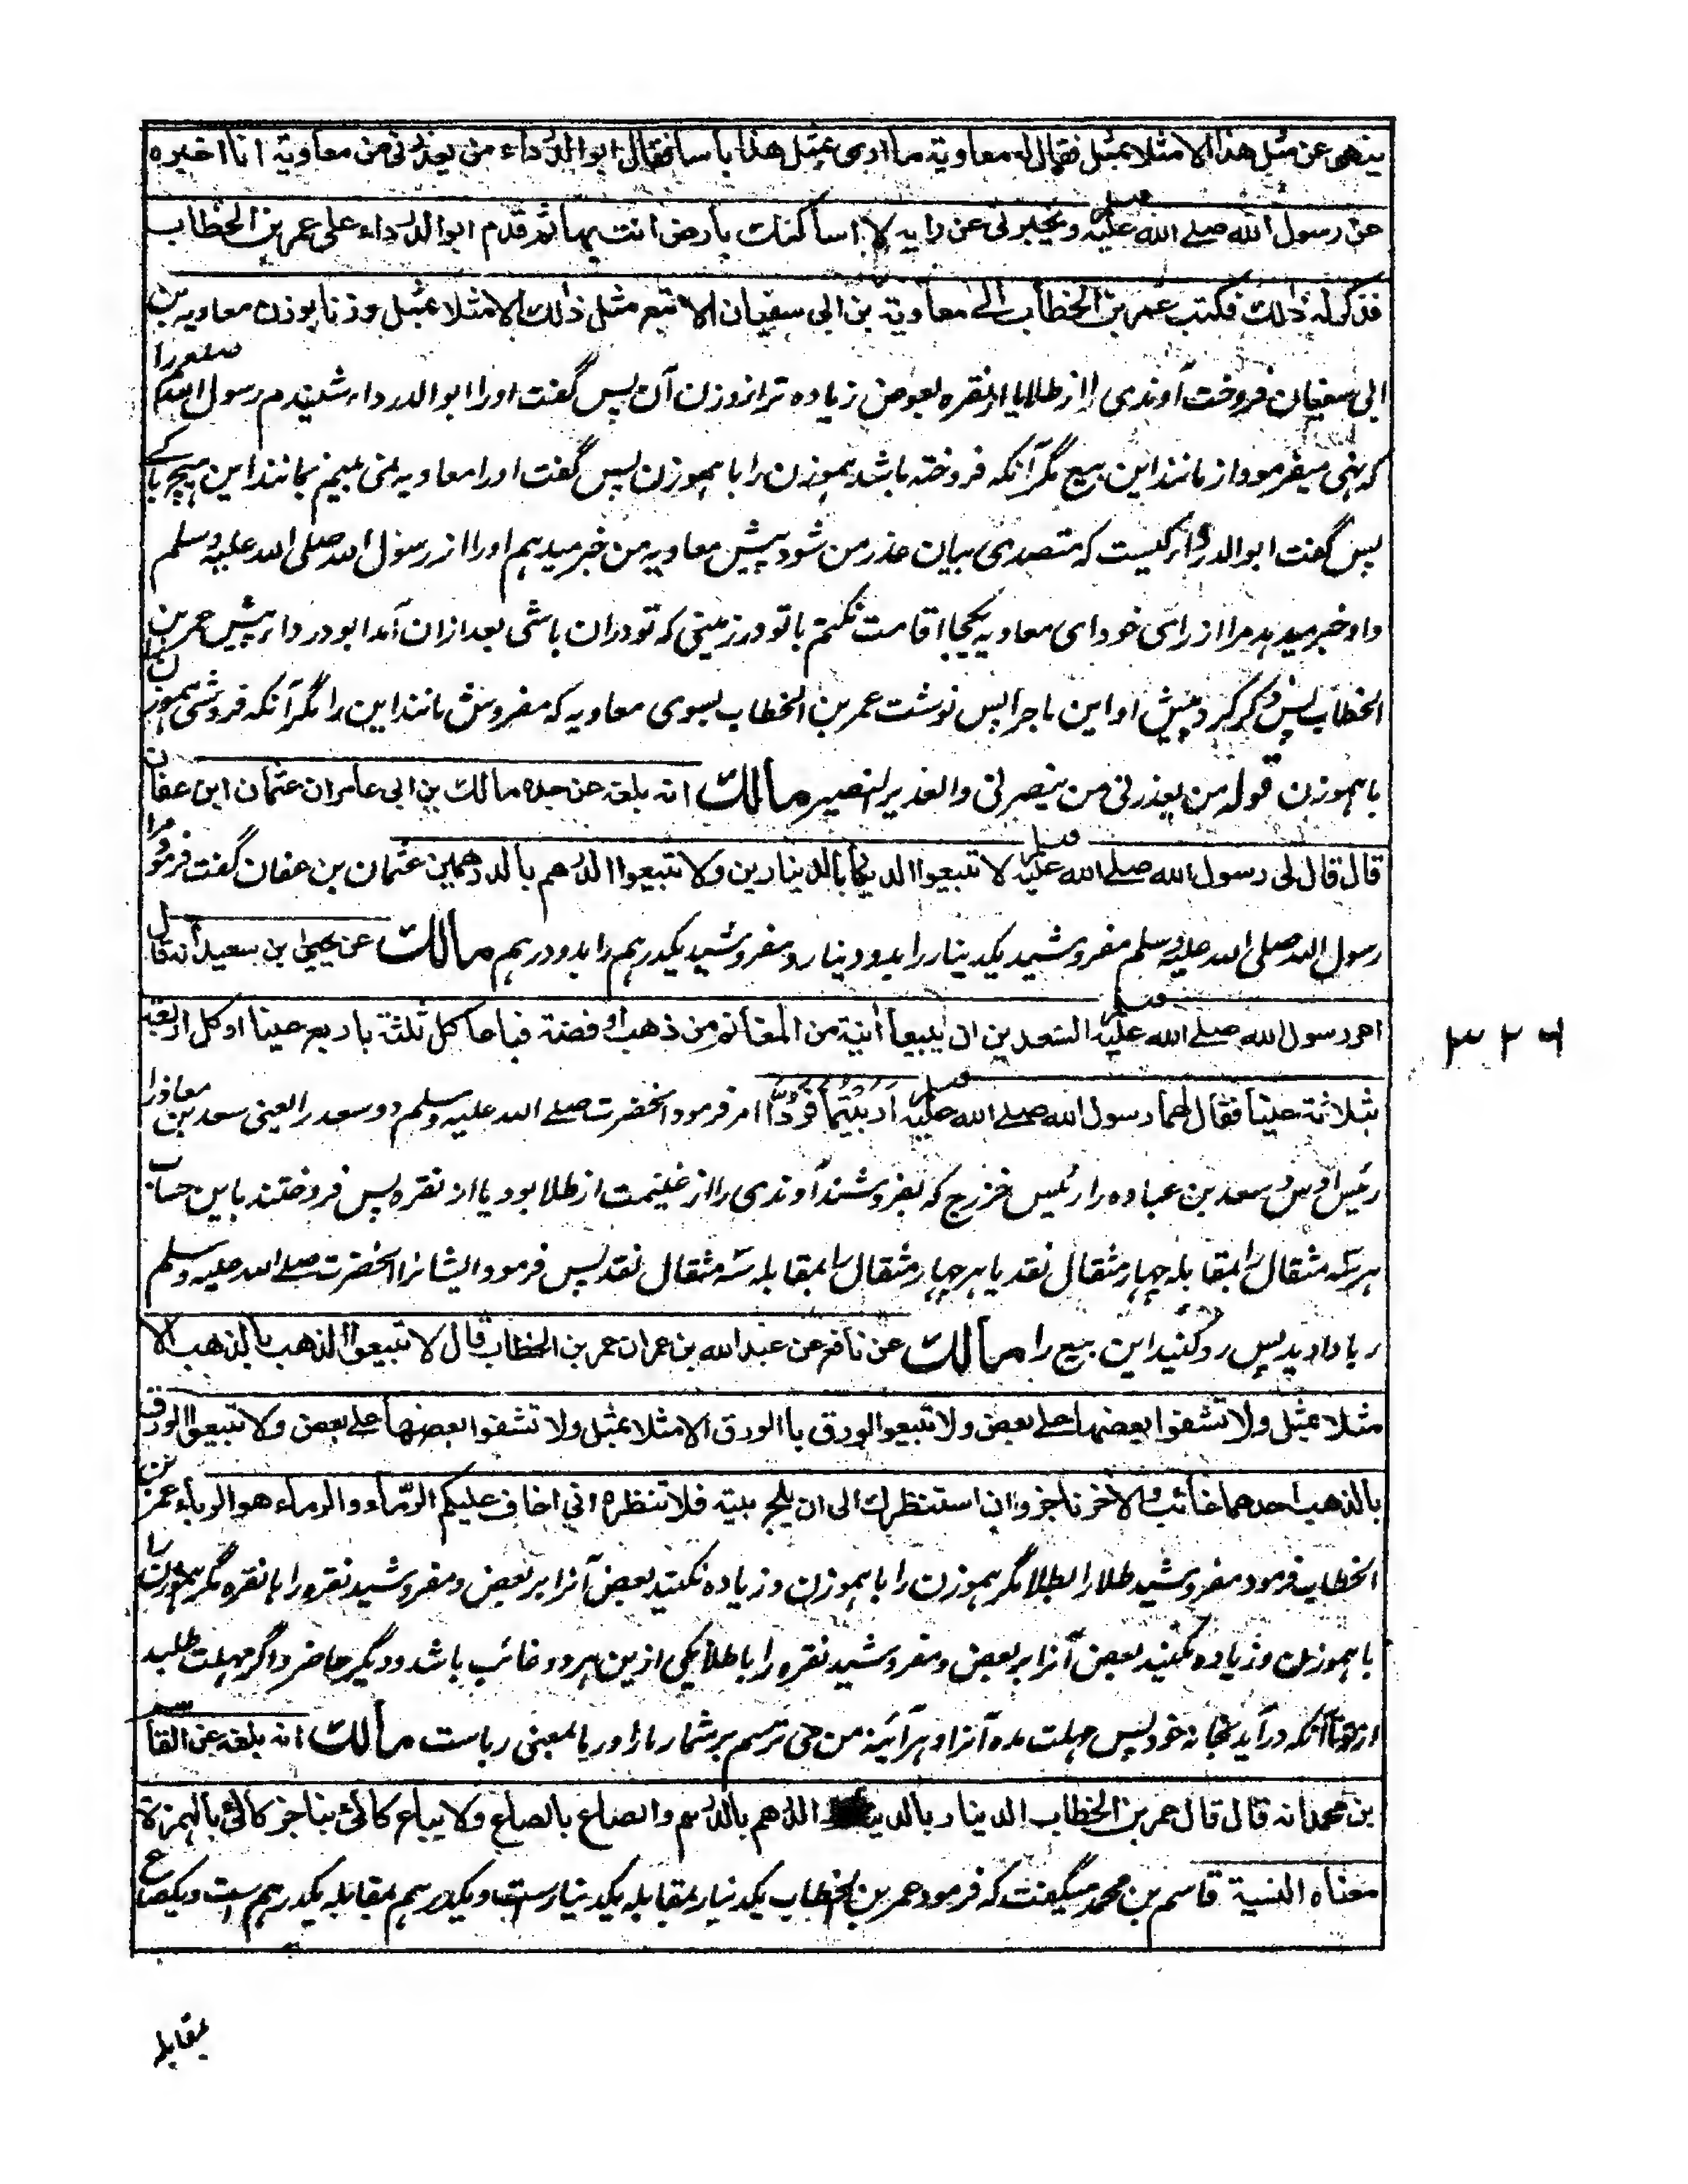 ينهى عن مثل هذا الا مثلا بمثل فقال له معاوية ما ارى بمثل هذا باسا فقال ابو الدرداء من يعذرنى من معاوية انا اخبره
عن رسول الله صلے الله عليه وسلم ويخبرنى عن رايه لا اساكنك بارض انت بها ثم قدم ابو الدرداء على عمر بن الخطاب
فذكر له ذلك فكتب عمر بن الخطاب الے معاوية بن ابى سفيان الا تبع مثل ذلك الا مثلا بمثل وزنا بوزن معاويه بن
ابى سفيان فروخت آوندى را از طلا يا از نقره بعوض زياده تر از وزن آن پس گفت او را ابو الدرداء شنيدم رسول الله صلعم را
که نهى ميفرمود از مانند اين بيع مگر آنکه فروخته باشد هموزن را با هموزن پس گفت او را معاويه نمى بينم بمانند اين هيچ باکے
پس گفت ابو الدرداء کيست که متصدى بيان عذر من شود پيش معاويه من خبر ميدهم او را از رسول الله صلى الله عليه وسلم
و او خبر ميدهد مرا از راى خود اى معاويه يکجا اقامت نکنم با تو در زمينى که تو دران باشى بعد ازان آمد ابو درداء پيش عمر بن
الخطاب پس ذکر کرد پيش او اين ماجرا پس نوشت عمر بن الخطاب بسوى معاويه که مفروش مانند اين را مگر آنکه فروشى هموزن
با هموزن قوله من يعذرنى من ينصرنى والعذير النصير مالك انه بلغه عن جده مالك بن ابى عامر ان عثمان ابن عفان
قال قال لى رسول الله صلے الله عليه وسلم لا تبيعوا الدينار بالدينارين ولا تبيعوا الدرهم بالدرهمين عثمان بن عفان گفت فرمود مرا
رسول الله صلى الله عليه وسلم مفروشيد يکدينار را بدو دينار و مفروشيد يکدرهم را بدو درهم مالك عن يحيى ابن سعيد انه قال
امر رسول الله صلے الله عليه وسلم السعدين ان يبيعا انية من المغانم من ذهب او فضة فباعا كل ثلثة باربعة عينا او كل اربعة
بثلاثة عينا فقال لهما رسول الله صلے الله عليه وسلم اربيتما فردا امر فرمود آنحضرت صلے الله عليه وسلم دو سعد را يعنى سعد بن معاذ را
رئيس اوس و سعد بن عباده را رئيس خزرج که بفروشند آوندى را از غنيمت از طلا بود يا از نقره پس فروختند باين حساب
هر سه مثقال را بمقابله چهار مثقال نقد يا هر چهار مثقال را بمقابله سه مثقال نقد پس فرمود ايشانرا آنحضرت صلے الله عليه وسلم
ربا داديد پس رد کنيد اين بيع را مالك عن نافع عن عبد الله بن عمر ان عمر بن الخطاب قال لا تبيعوا الذهب بالذهب الا
مثلا بمثل ولا تشفوا بعضها على بعض ولا تبيعوا الورق باالورق الا مثلا بمثل ولا تشفوا بعضها على بعض ولا تبيعوا الورق
بالذهب احدهما غائب والاخر ناجز وان استنظرك الى ان يلج بيته فلا تنظره انى اخاف عليكم الرماء والرماء هو الرباء عمر بن
الخطاب فرمود مفروشيد طلا را بطلا مگر هموزن را با هموزن و زياده نکنيد بعض آنرا بر بعض و مفروشيد نقره را با نقره مگر هموزن را
با هموزن و زياده نکنيد بعض آنرا بر بعض و مفروشيد نقره را با طلا يکى ازين هر دو غائب باشد و ديگر حاضر و اگر مهلت طلبد
از تو تا آنکه درآيد بخانه خود پس مهلت مده آنرا و هر آئينه من مى ترسم بر شما رما را و رما بمعنى رباست مالك انه بلغه عن القاسم
بن محمد انه قال قال عمر بن الخطاب الدينار بالدينار الدرهم بالدرهم والصاع بالصاع ولا يباع كالئ بناجز كالئ بالهمزة
معناه النسية قاسم بن محمد ميگفت که فرمود عمر بن الخطاب يکدينار بمقابله يکدينارست و يکدرهم بمقابله يکدرهم ست و يکصاع
بمقابله
۳۲۶